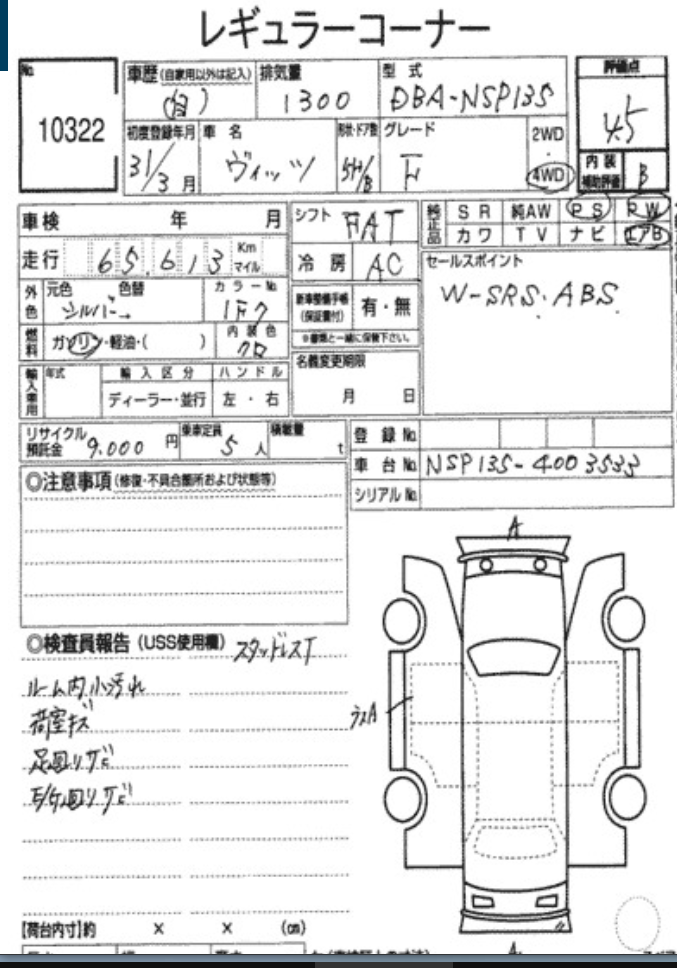 レギュラーコーナー
No. 10322
車歴 (自家用以外は記入) (自)
排気量 1300
型式 DBA-NSP135
評価点 4.5
初度登録年月 31/3月
車名 ヴィッツ
形状・ドア数 5H/B
グレード F
2WD・4WD
内装補助評価 B
車検 年 月
シフト FAT
純正品 SR 純AW PS PW
カワ TV ナビ エアB
走行 65,613 Km マイル
冷房 AC
セールスポイント
W-SRS. ABS.
外色 元色 色替 シルバー→
カラーNo. 1F7
新車整備手帳(保証書付) 有・無
※書類と一緒に保管下さい。
燃料 ガソリン・軽油・( )
内装色 クロ
名義変更期限 月 日
輸入車用 年式 輸入区分 ハンドル
ディーラー・並行 左・右
リサイクル預託金 9,000円
乗車定員 5人
積載量 t
登録No.
車台No. NSP135-4003533
シリアルNo.
◎注意事項 (修復・不具合箇所および状態等)
A
◎検査員報告 (USS使用欄) スタッドレスT
ルーム内小汚れ
荷室キズ
ウスA
足回りサビ
下回りサビ
【荷台内寸】約 × × (cm)
A